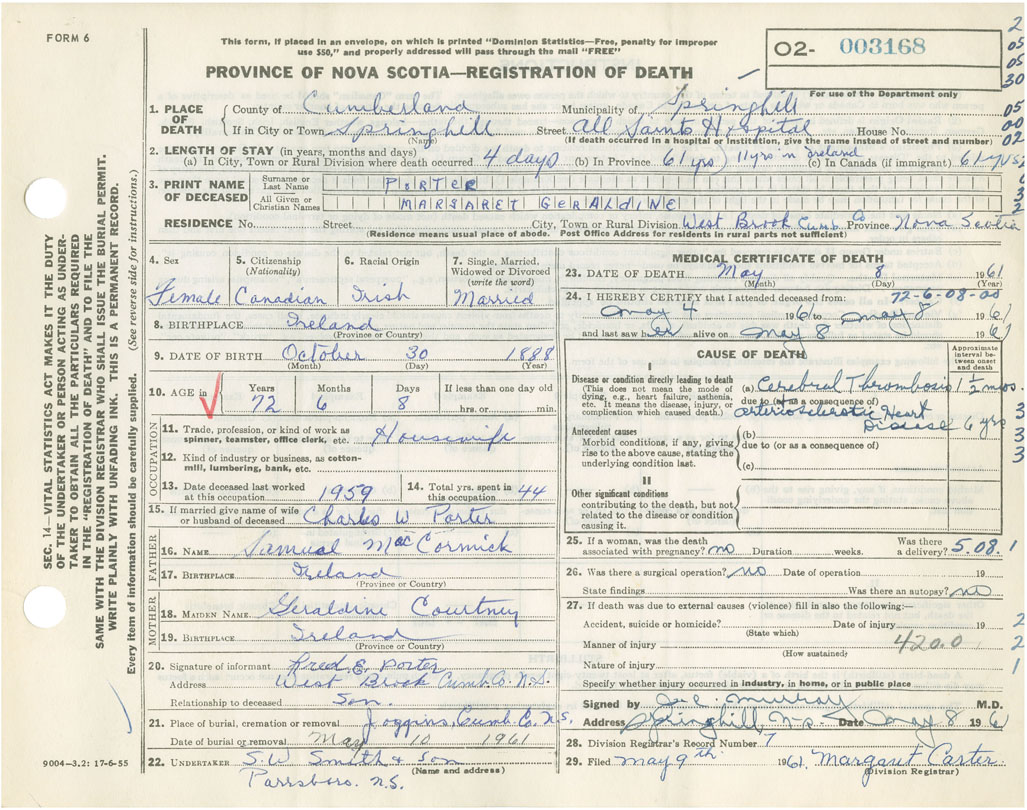 FORM 6
This form, if placed in an envelope, on which is printed "Dominion Statistics—Free, penalty for improper
use $50," and properly addressed will pass through the mail "FREE"
02- 003168
2
05
05
30
PROVINCE OF NOVA SCOTIA—REGISTRATION OF DEATH
For use of the Department only
1. PLACE OF DEATH County of Cumberland Municipality of Springhill
05
If in City or Town Springhill (Name) Street All Saints Hospital House No.
00
(If death occurred in a hospital or institution, give the name instead of street and number)
02
2. LENGTH OF STAY (in years, months and days)
(a) In City, Town or Rural Division where death occurred 4 days (b) In Province 61 yrs) 11 yrs in Ireland (c) In Canada (if immigrant) 61 yrs.
3. PRINT NAME OF DECEASED
Surname or Last Name PORTER
All Given or Christian Names MARGARET GERALDINE
RESIDENCE No. Street City, Town or Rural Division West Brook Cumb. Co Province Nova Scotia
(Residence means usual place of abode. Post Office Address for residents in rural parts not sufficient)
4. Sex Female
5. Citizenship (Nationality) Canadian
6. Racial Origin Irish
7. Single, Married, Widowed or Divorced (write the word) Married
8. BIRTHPLACE Ireland
(Province or Country)
9. DATE OF BIRTH October 30 1888
(Month) (Day) (Year)
10. AGE in Years 72 Months 6 Days 8 If less than one day old hrs. or min.
OCCUPATION
11. Trade, profession, or kind of work as spinner, teamster, office clerk, etc. Housewife
12. Kind of industry or business, as cotton-mill, lumbering, bank, etc.
13. Date deceased last worked at this occupation 1959
14. Total yrs. spent in this occupation 44
15. If married give name of wife or husband of deceased Charles W Porter
FATHER
16. NAME Samual MacCormick
17. BIRTHPLACE Ireland
(Province or Country)
MOTHER
18. MAIDEN NAME Geraldine Courtney
19. BIRTHPLACE Ireland
(Province or Country)
20. Signature of informant Fred E. Porter
Address West Brook Cumb. Co. N.S.
Relationship to deceased Son.
21. Place of burial, cremation or removal Joggins, Cumb. Co. N.S.
Date of burial or removal May 10 1961
22. UNDERTAKER S.W. Smith & Son
(Name and address)
Parrsboro. N.S.
MEDICAL CERTIFICATE OF DEATH
23. DATE OF DEATH May 8 1961
(Month) (Day) (Year)
24. I HEREBY CERTIFY that I attended deceased from: 72-6-08-00
May 4 1961 to May 8 1961
and last saw her alive on May 8 1961
CAUSE OF DEATH
Approximate interval between onset and death
I
Disease or condition directly leading to death
(This does not mean the mode of dying, e.g., heart failure, asthenia, etc. It means the disease, injury, or complication which caused death.)
(a) Cerebral Thrombosis 1 1/2 mos.
due to (or as a consequence of)
Arteriosclerotic Heart Disease 6 yrs
Antecedent causes
Morbid conditions, if any, giving rise to the above cause, stating the underlying condition last.
(b)
due to (or as a consequence of)
(c)
3
3
3
3
II
Other significant conditions
contributing to the death, but not related to the disease or condition causing it.
25. If a woman, was the death associated with pregnancy? no Duration weeks. Was there a delivery? 5.08.1
26. Was there a surgical operation? no Date of operation 19
State findings Was there an autopsy? no
27. If death was due to external causes (violence) fill in also the following:—
Accident, suicide or homicide? (State which) Date of injury 19
2
Manner of injury (How sustained) 420.0
2
Nature of injury
1
Specify whether injury occurred in industry, in home, or in public place
Signed by J.C. Murray M.D.
Address Springhill, N.S. Date May 8 1961
28. Division Registrar's Record Number 7
29. Filed May 9th 1961. Margaret Carter.
(Division Registrar)
9004—3.2: 17-6-55
SEC. 14—VITAL STATISTICS ACT MAKES IT THE DUTY
OF THE UNDERTAKER OR PERSON ACTING AS UNDER-
TAKER TO OBTAIN ALL THE PARTICULARS REQUIRED
IN THE "REGISTRATION OF DEATH" AND TO FILE THE
SAME WITH THE DIVISION REGISTRAR WHO SHALL ISSUE THE BURIAL PERMIT.
WRITE PLAINLY WITH UNFADING INK. THIS IS A PERMANENT RECORD.
Every item of information should be carefully supplied. (See reverse side for instructions.)